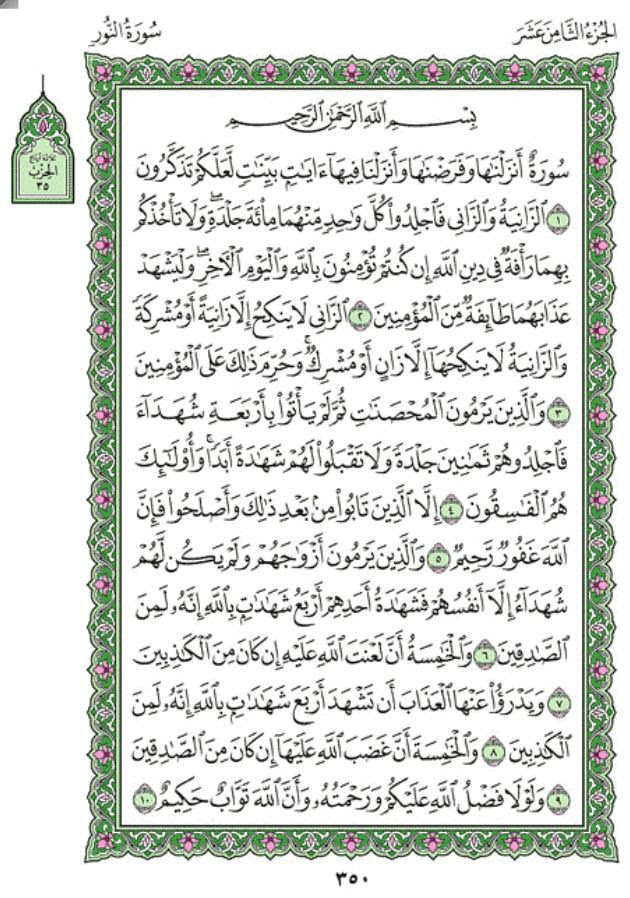 الجزء الثامن عشر
سورة النور
ثلاثة أرباع
الحزب
٣٥
بِسْمِ اللَّهِ الرَّحْمَٰنِ الرَّحِيمِ
سُورَةٌ أَنزَلْنَٰهَا وَفَرَضْنَٰهَا وَأَنزَلْنَا فِيهَآ ءَايَٰتٍۭ بَيِّنَٰتٍ لَّعَلَّكُمْ تَذَكَّرُونَ
١ ٱلزَّانِيَةُ وَٱلزَّانِى فَٱجْلِدُوا۟ كُلَّ وَٰحِدٍ مِّنْهُمَا مِا۟ئَةَ جَلْدَةٍ ۖ وَلَا تَأْخُذْكُم
بِهِمَا رَأْفَةٌ فِى دِينِ ٱللَّهِ إِن كُنتُمْ تُؤْمِنُونَ بِٱللَّهِ وَٱلْيَوْمِ ٱلْءَاخِرِ ۖ وَلْيَشْهَدْ
عَذَابَهُمَا طَآئِفَةٌ مِّنَ ٱلْمُؤْمِنِينَ ٢ ٱلزَّانِى لَا يَنكِحُ إِلَّا زَانِيَةً أَوْ مُشْرِكَةً
وَٱلزَّانِيَةُ لَا يَنكِحُهَآ إِلَّا زَانٍ أَوْ مُشْرِكٌ ۚ وَحُرِّمَ ذَٰلِكَ عَلَى ٱلْمُؤْمِنِينَ
٣ وَٱلَّذِينَ يَرْمُونَ ٱلْمُحْصَنَٰتِ ثُمَّ لَمْ يَأْتُوا۟ بِأَرْبَعَةِ شُهَدَآءَ
فَٱجْلِدُوهُمْ ثَمَٰنِينَ جَلْدَةً وَلَا تَقْبَلُوا۟ لَهُمْ شَهَٰدَةً أَبَدًا ۚ وَأُو۟لَٰٓئِكَ
هُمُ ٱلْفَٰسِقُونَ ٤ إِلَّا ٱلَّذِينَ تَابُوا۟ مِنۢ بَعْدِ ذَٰلِكَ وَأَصْلَحُوا۟ فَإِنَّ
ٱللَّهَ غَفُورٌ رَّحِيمٌ ٥ وَٱلَّذِينَ يَرْمُونَ أَزْوَٰجَهُمْ وَلَمْ يَكُن لَّهُمْ
شُهَدَآءُ إِلَّآ أَنفُسُهُمْ فَشَهَٰدَةُ أَحَدِهِمْ أَرْبَعُ شَهَٰدَٰتٍۭ بِٱللَّهِ إِنَّهُۥ لَمِنَ
ٱلصَّٰدِقِينَ ٦ وَٱلْخَٰمِسَةُ أَنَّ لَعْنَتَ ٱللَّهِ عَلَيْهِ إِن كَانَ مِنَ ٱلْكَٰذِبِينَ
٧ وَيَدْرَؤُا۟ عَنْهَا ٱلْعَذَابَ أَن تَشْهَدَ أَرْبَعَ شَهَٰدَٰتٍۭ بِٱللَّهِ إِنَّهُۥ لَمِنَ
ٱلْكَٰذِبِينَ ٨ وَٱلْخَٰمِسَةَ أَنَّ غَضَبَ ٱللَّهِ عَلَيْهَآ إِن كَانَ مِنَ ٱلصَّٰدِقِينَ
٩ وَلَوْلَا فَضْلُ ٱللَّهِ عَلَيْكُمْ وَرَحْمَتُهُۥ وَأَنَّ ٱللَّهَ تَوَّابٌ حَكِيمٌ ١٠
٣٥٠